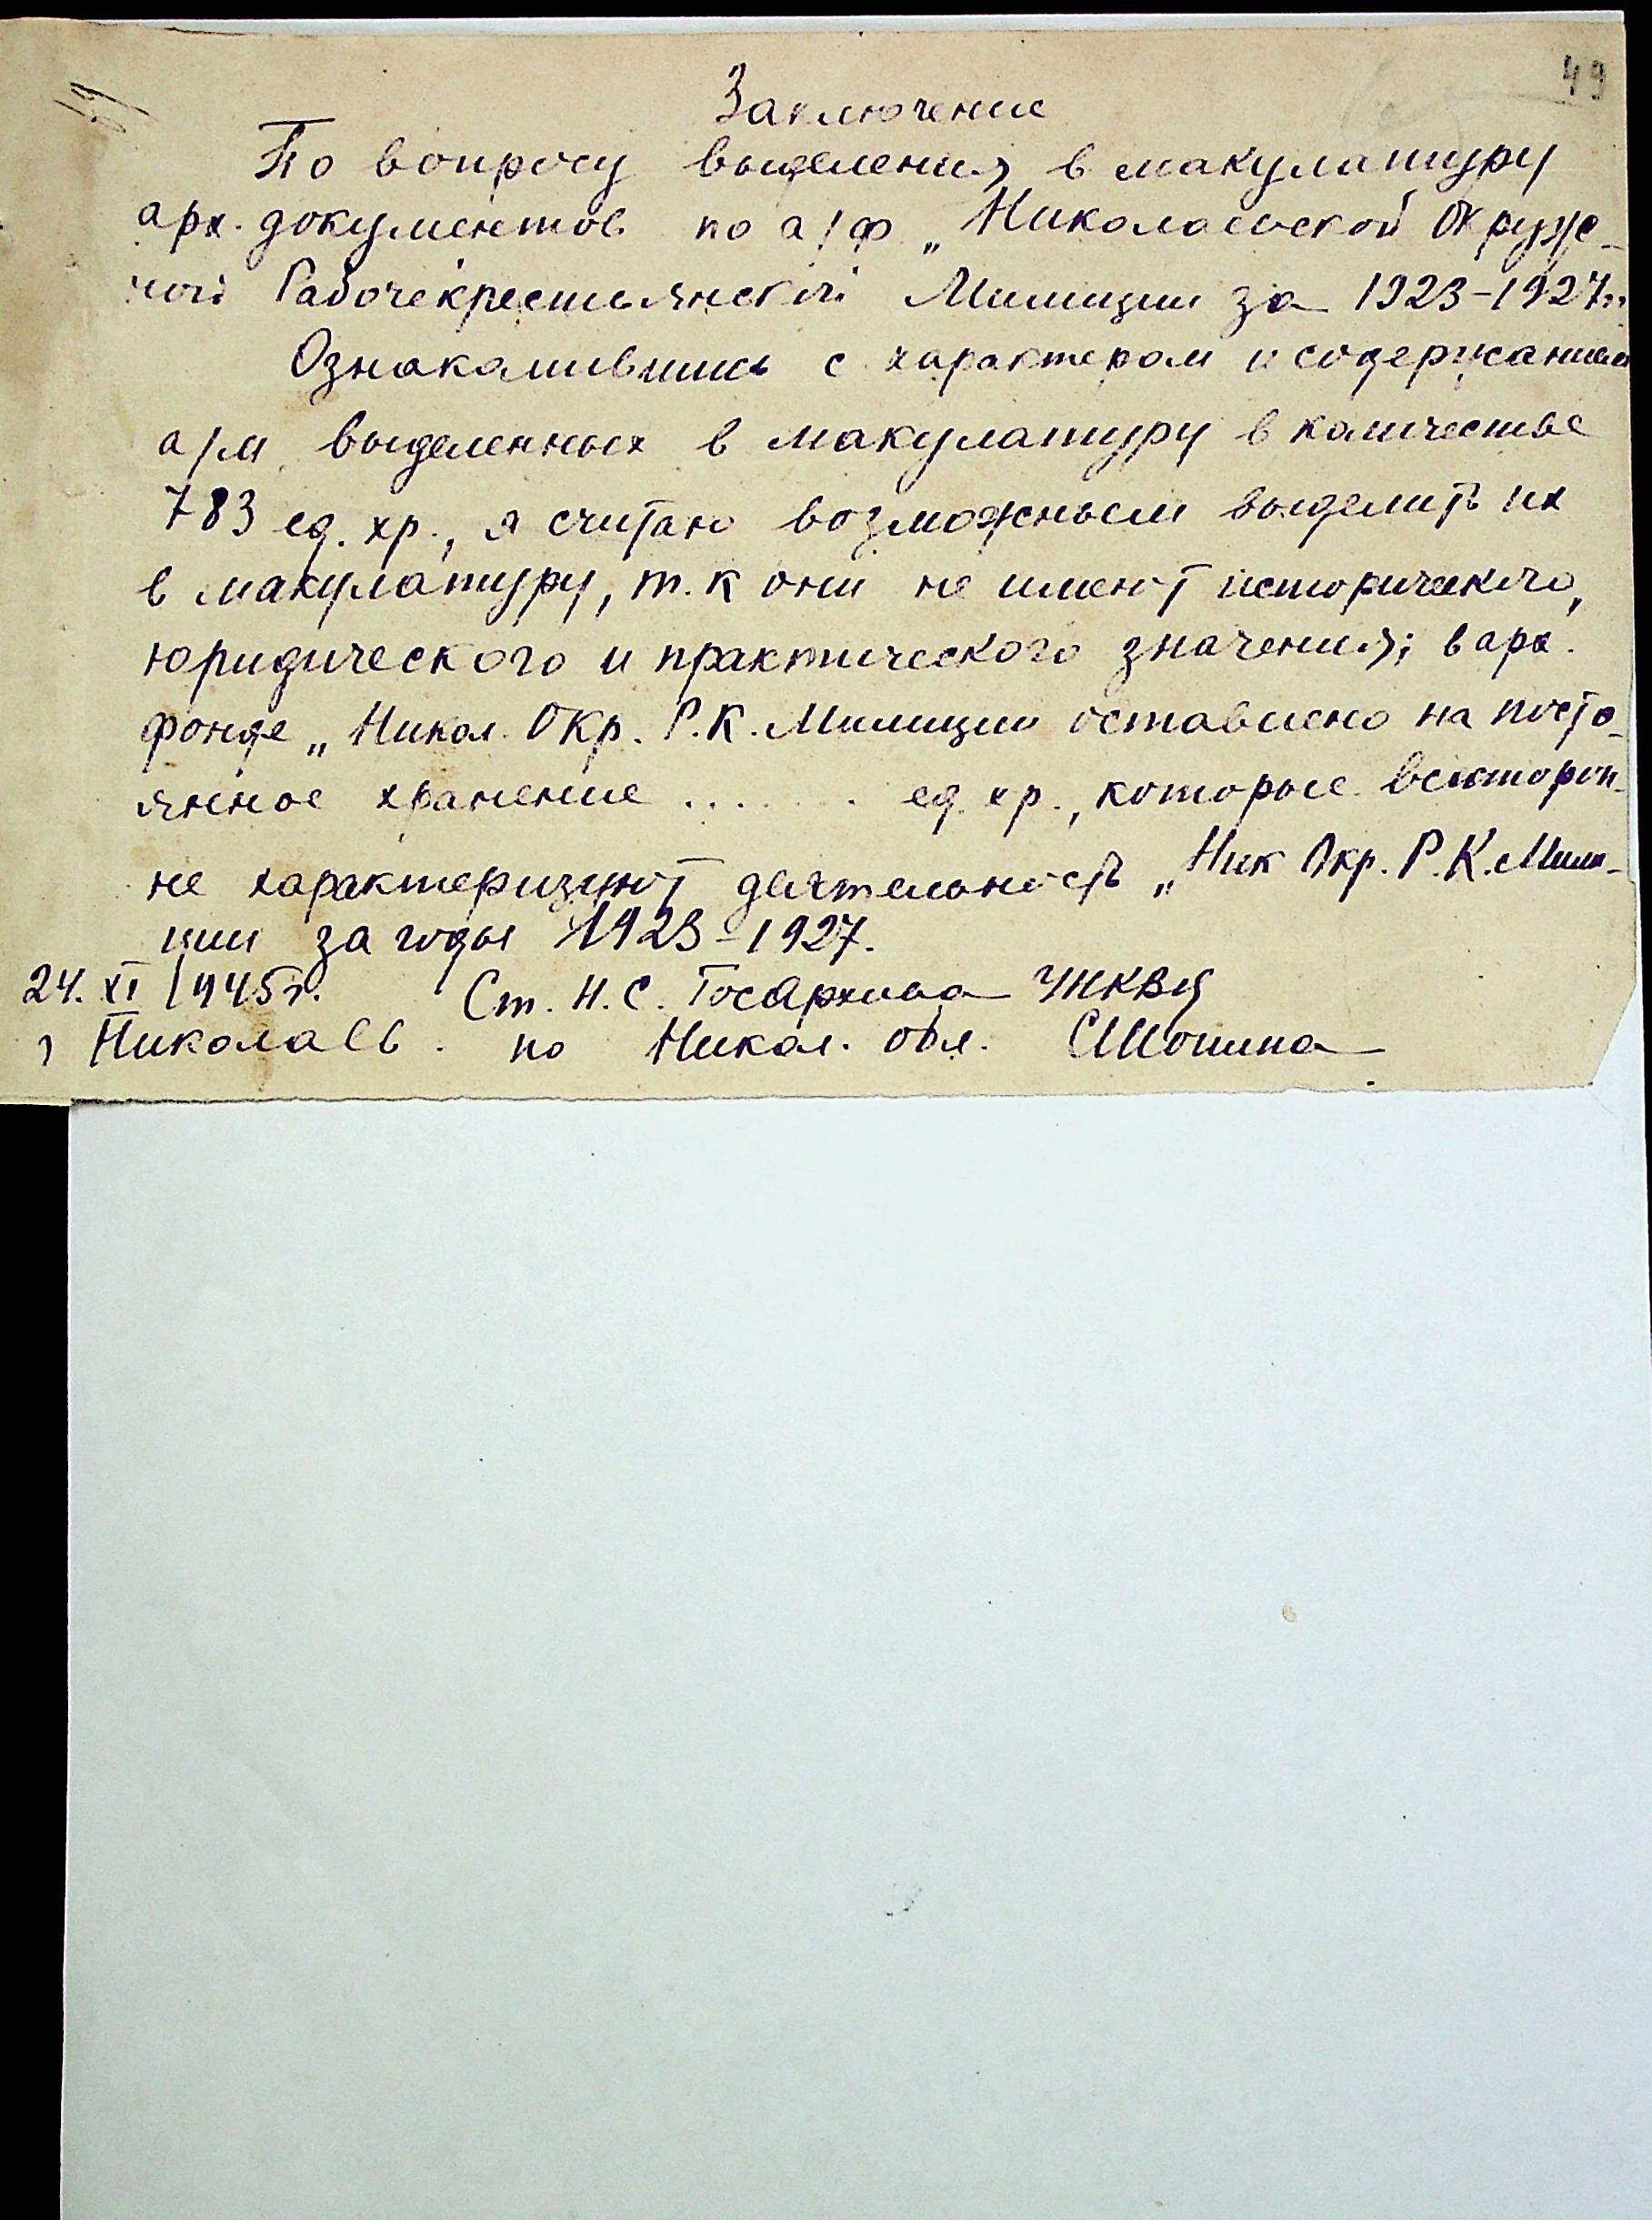 49
Заключение
По вопросу выделения в макулатуру
арх. документов по а/ф „Николаевской Окруж-
ной Рабочекрестьянской Милиции за 1923-1927гг.
Ознакамившись с характером и содержанием
а/м выделенных в макулатуру в количестве
783 ед. хр., я считаю возможным выделить их
в макулатуру, т.к они не имеют исторического,
юридического и практического значения; в арх.
фонде „Никол. Окр. Р.К. Милиции оставлено на посто-
янное хранение ....... ед. хр., которые всесторон-
не характеризуют деятельность „Ник Окр. Р.К. Мили-
ции за годы 1923-1927.
24. XI 1945г. Ст. Н.С. Госархива УНКВД
г Николаев. по Никол. обл.